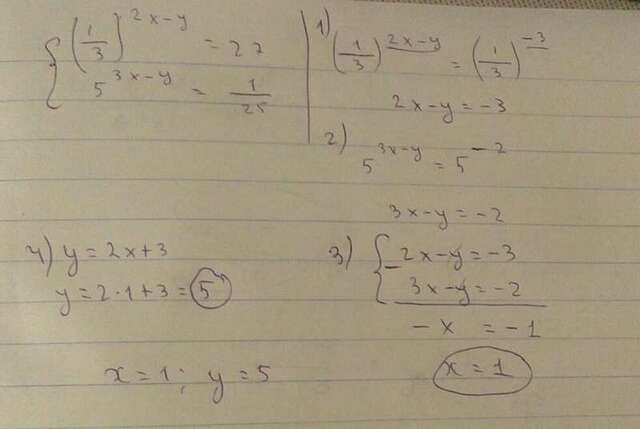 { (1/3)^(2x-y) = 27
5^(3x-y) = 1/25
1) (1/3)^(2x-y) = (1/3)^(-3)
2x-y = -3
2) 5^(3x-y) = 5^(-2)
3x-y = -2
3) { - 2x-y = -3
3x-y = -2
-x = -1
x = 1
4) y = 2x+3
y = 2·1+3 = 5
x = 1; y = 5